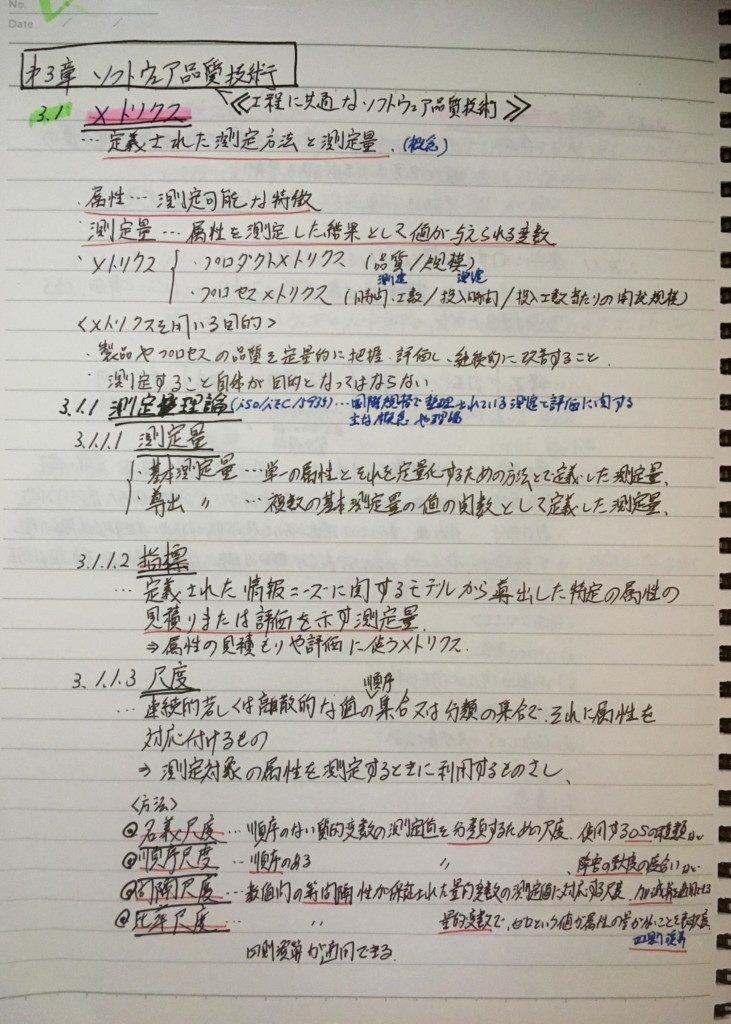 No.
Date
第3章 ソフトウェア品質技術
≪工程に共通なソフトウェア品質技術≫
3.1 メトリクス
… 定義された測定方法と測定量. (概念)
・属性 … 測定可能な特徴
・測定量 … 属性を測定した結果として値が与えられる変数
・メトリクス { ・プロダクトメトリクス (品質/規模)
・プロセスメトリクス (時間、工数/投入時間/投入工数当たりの開発規模)
<メトリクスを用いる目的>
・製品やプロセスの品質を定量的に把握・評価し、継続的に改善すること.
・測定すること自体が目的となってはならない.
3.1.1 測定理論 (iso/iec/15939) … 国際規格で整理されている測定と評価に関する
主な概念や理論
3.1.1.1 測定量
{ ・基本測定量 … 単一の属性とそれを定量化するための方法とで定義した測定量.
・導出 〃 … 複数の基本測定量の値の関数として定義した測定量.
3.1.1.2 指標
… 定義された情報ニーズに関するモデルから導出した特定の属性の
見積りまたは評価を示す測定量.
⇒ 属性の見積もりや評価に使うメトリクス.
3.1.1.3 尺度
順序
… 連続的若しくは離散的な値の集合又は分類の集合で、それに属性を
対応付けるもの
⇒ 測定対象の属性を測定するときに利用するものさし.
<方法>
@名義尺度 … 順序のない質的変数の測定値を分類するための尺度. 使用するOSの種類
@順序尺度 … 順序のある 〃 . 障害の
@間隔尺度 … 数値間の等間隔性が保証された量的変数の測定値に対応する尺度.
@比率尺度 … 〃 量的変数で、ゼロという値が属性の量がないことを
四則演算
四則演算が適用できる.